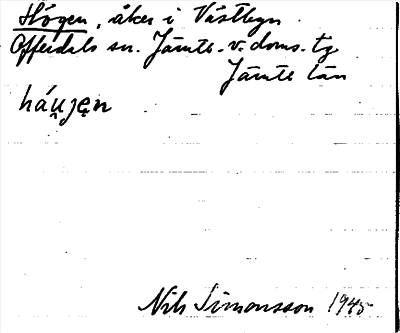 Högen, åker i Västbyn
Offerdals sn. Jämtl. v. doms. tg
Jämtl län
háu̯gen
Nils Simonsson 1945